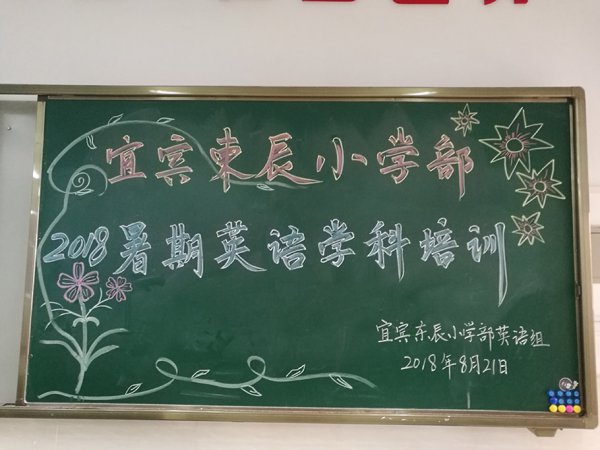 宜宾東辰小学部
2018暑期英语学科培训
宜宾东辰小学部英语组
2018年8月21日